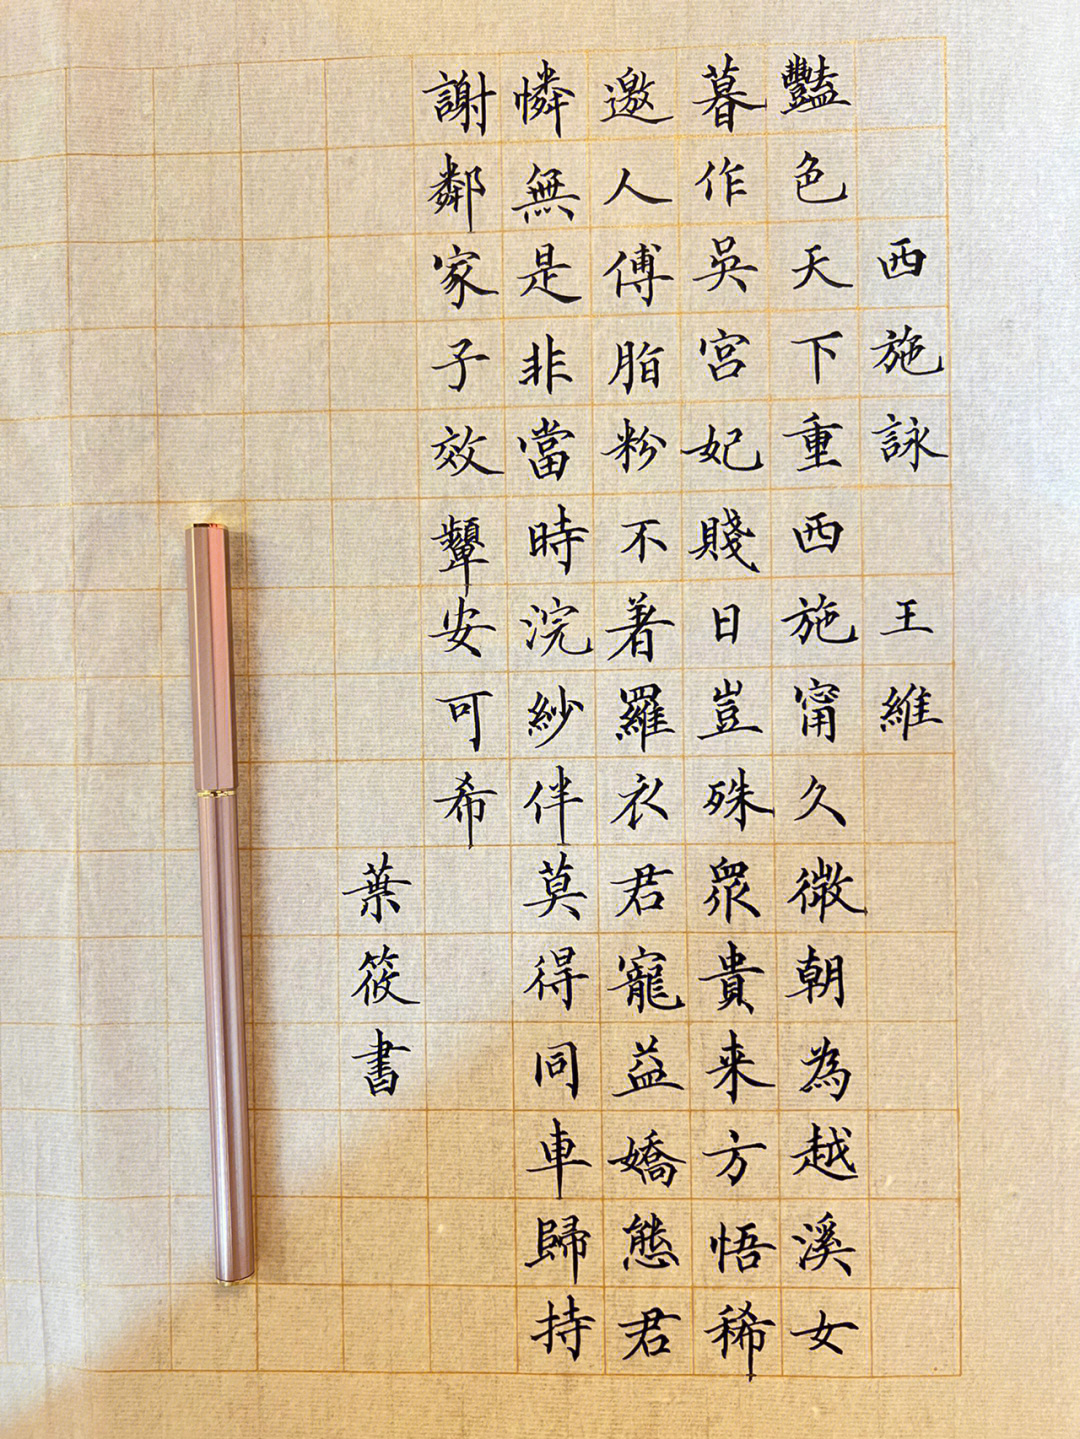 西施詠 王維
豔色天下重西施甯久微朝為越溪女
暮作吳宮妃賤日豈殊眾貴来方悟稀
邀人傅脂粉不著羅衣君寵益嬌態君
憐無是非當時浣紗伴莫得同車歸持
謝鄰家子效顰安可希
葉筱書